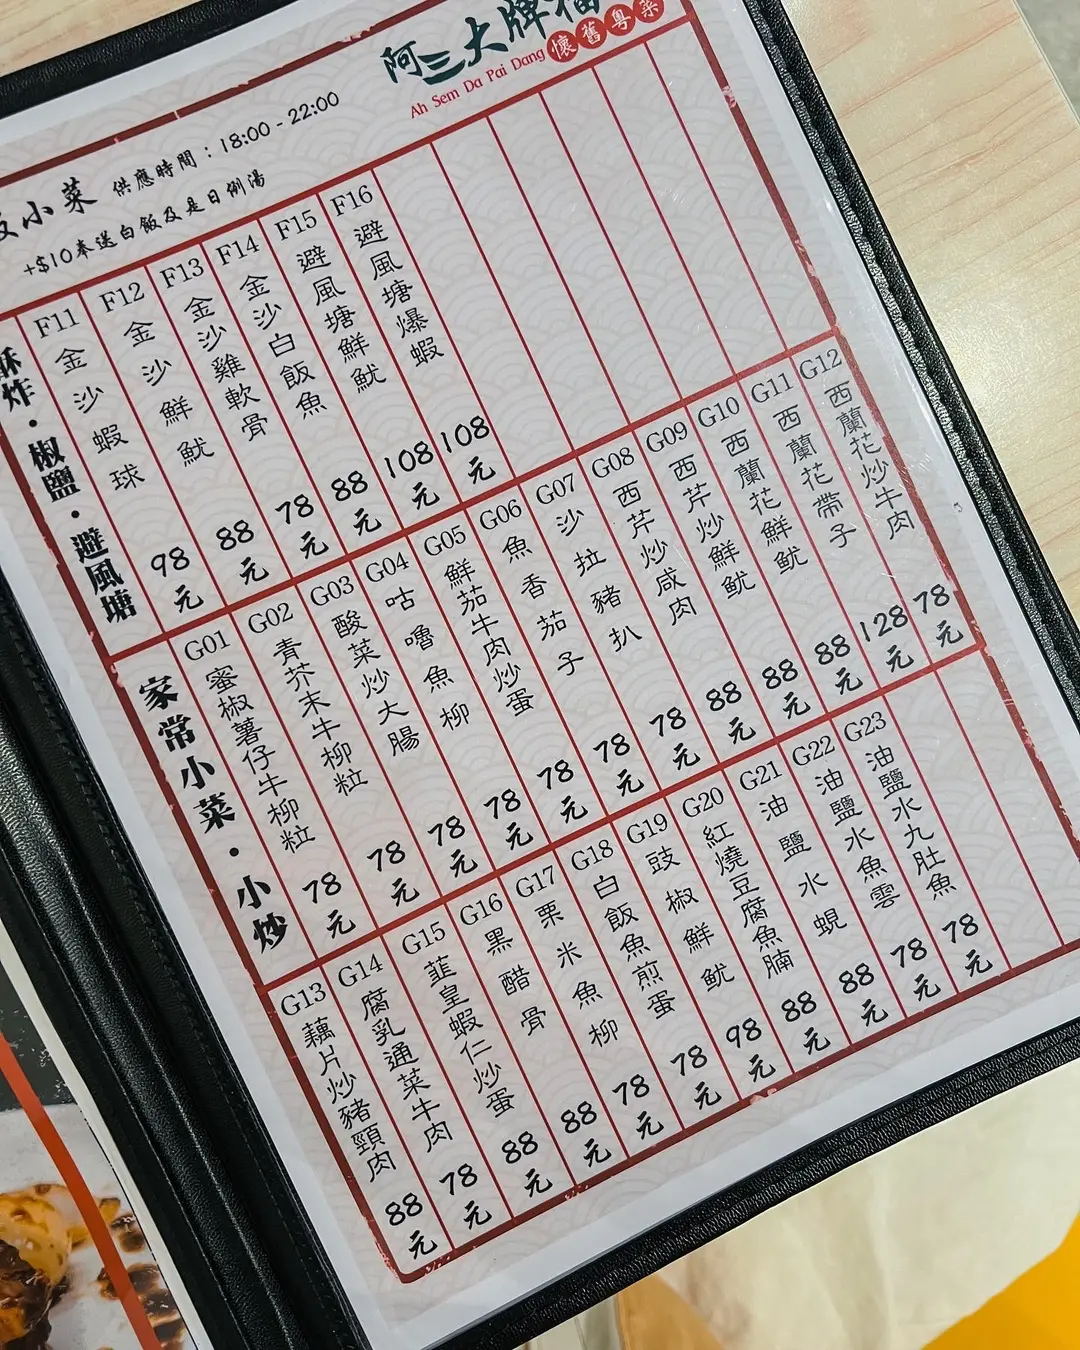 阿三大牌
懷舊粵菜
Ah Sem Da Pai Dang
小菜 供應時間：18:00 - 22:00
+$10奉送白飯及是日例湯
炸・椒鹽・避風塘
F11 金沙蝦球 98元
F12 金沙鮮魷 88元
F13 金沙雞軟骨 78元
F14 金沙白飯魚 88元
F15 避風塘鮮魷 108元
F16 避風塘爆蝦 108元
家常小菜・小炒
G01 蜜椒薯仔牛柳粒 78元
G02 青芥末牛柳粒 78元
G03 酸菜炒大腸 78元
G04 咕嚕魚柳 78元
G05 鮮茄牛肉炒蛋 78元
G06 魚香茄子 78元
G07 沙拉豬扒 78元
G08 西芹炒咸肉 88元
G09 西芹炒鮮魷 88元
G10 西蘭花鮮魷 88元
G11 西蘭花帶子 128元
G12 西蘭花炒牛肉 78元
G13 藕片炒豬頸肉 88元
G14 腐乳通菜牛肉 78元
G15 韮皇蝦仁炒蛋 88元
G16 黑醋骨 88元
G17 栗米魚柳 78元
G18 白飯魚煎蛋 78元
G19 豉椒鮮魷 98元
G20 紅燒豆腐魚腩 88元
G21 油鹽水蜆 88元
G22 油鹽水魚雲 78元
G23 油鹽水九肚魚 78元